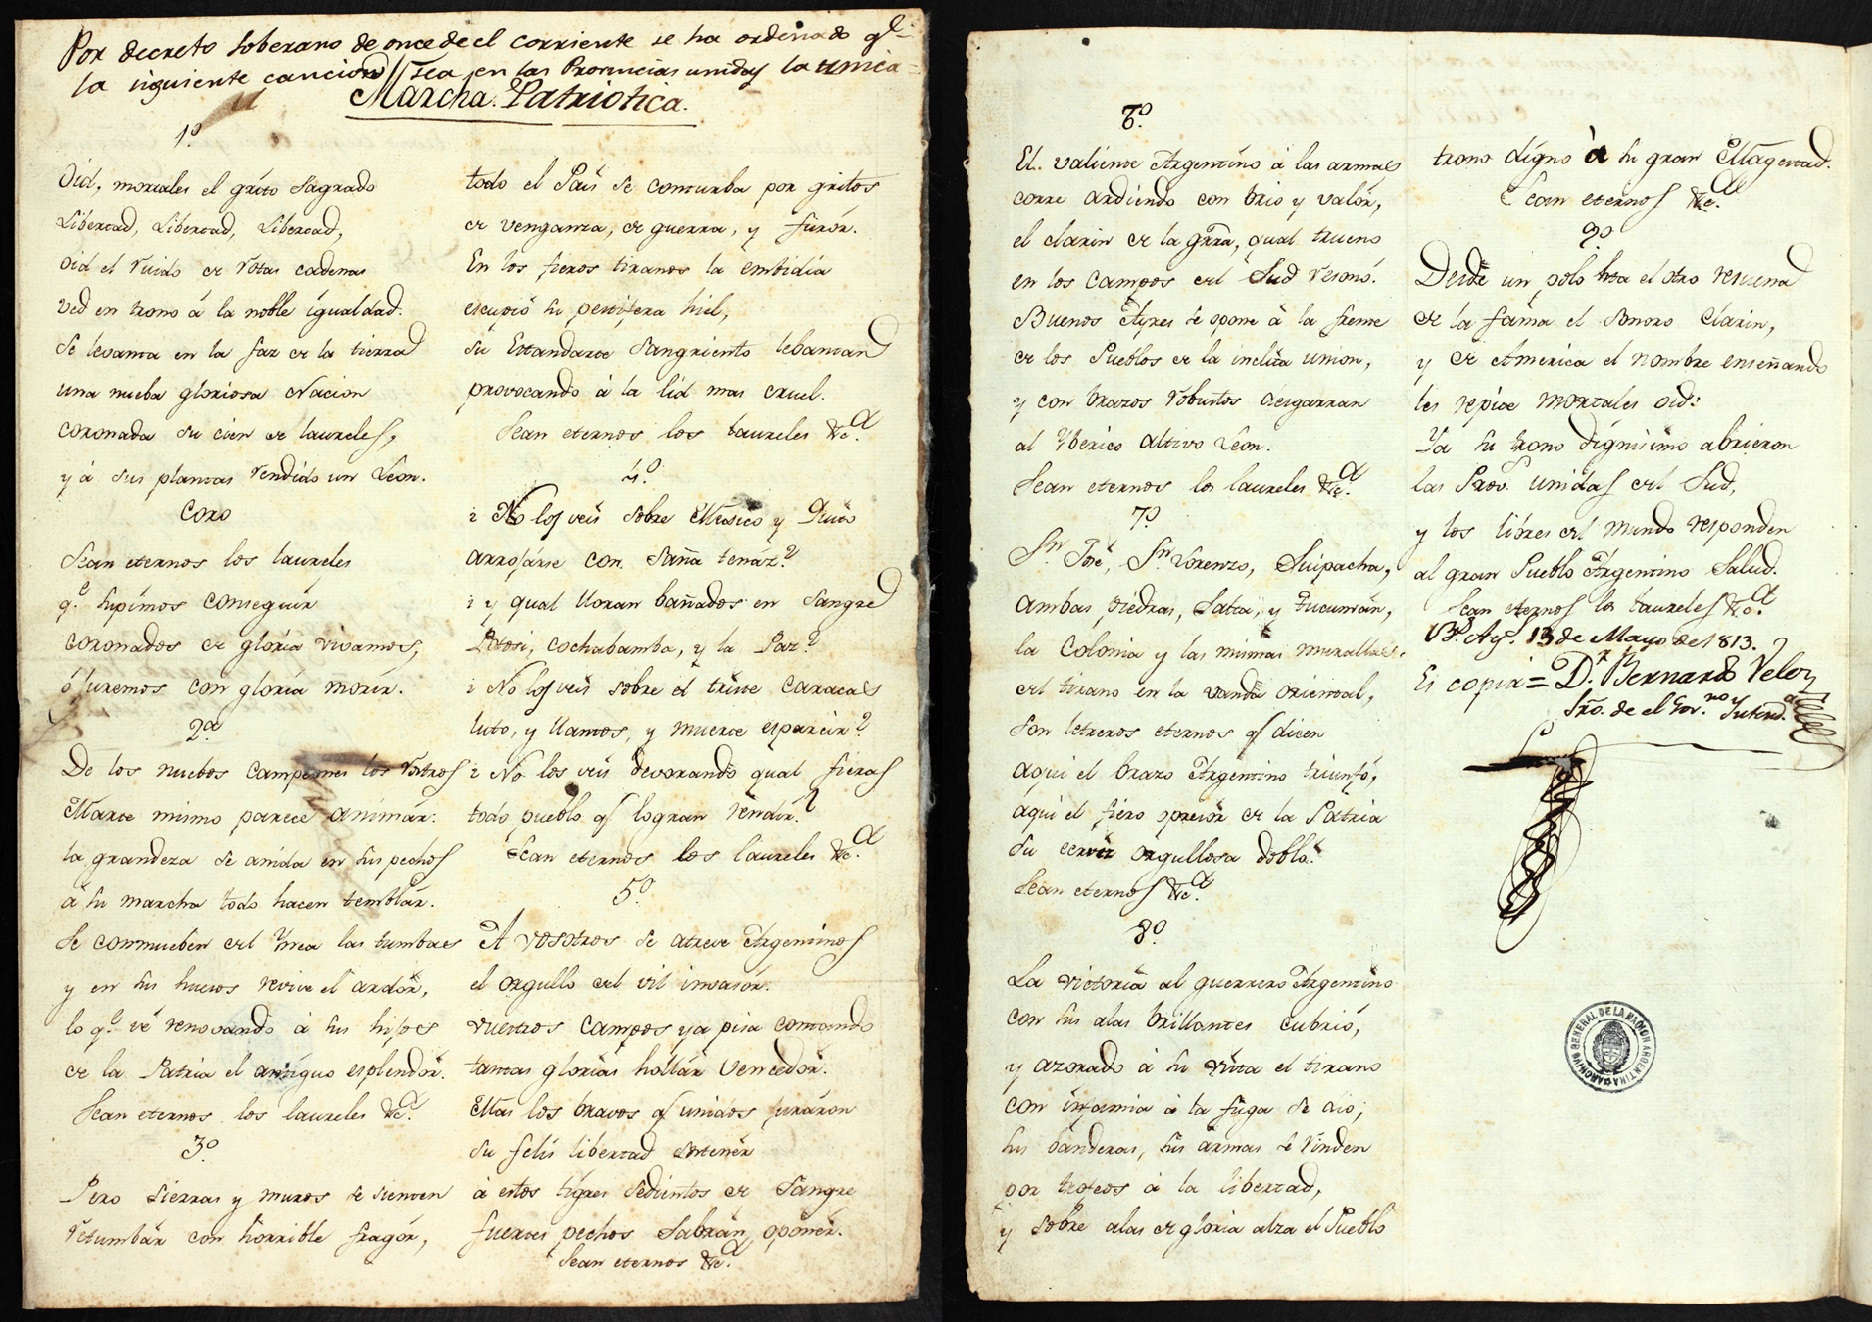 Por decreto soberano de once de el corriente se ha ordenado qe.
la siguiente cancion sea en las Provincias unidas la unica
Marcha Patriotica.
1.º
Oid, mortales el grito sagrado
Libertad, Libertad, Libertad,
oid el ruido de rotas cadenas
ved en trono á la noble igualdad.
Se levanta en la faz de la tierra
una nueba gloriosa Nacion
coronada su cien de laureles,
y á sus plantas rendido un Léon.
Coro
Sean eternos los laureles
q.e supimos conseguir
coronados de gloria vivamos,
ó juremos con gloria morir.
2.a
De los nuebos campeones los rostros
Marte mismo parece animár:
la grandeza se anida en sus pechos
á su marcha todo hacen temblár.
Se conmueben del Ynca las tumbas
y en sus huesos revive el ardór,
lo q.e vé renovando á sus hijos
de la Patria el antiguo esplendór.
Sean eternos los laureles &c.a
3.º
Pero sierras y muros se sienten
retumbár con horrible fragór,
todo el País se conturba por gritos
de venganza, de guerra, y furór.
En los fieros tiranos la embidia
escupió su pestifera hiel,
su Estandarte sangriento lebantan
provocando á la lid mas cruel.
Sean eternos los laureles &c.a
4.º
¿No los veis sobre Mexico y Quito
arrojárse con saña tenáz?
¿y qual lloran bañados en sangre
Potosi, cochabamba, y la Paz?
¿No los veis sobre el triste caracas
luto, y llantos, y muerte esparcir?
¿No los veis devorando qual fieras
todo pueblo q logran rendir?
Sean eternos los laureles &c.a
5.º
A vosotros se atreve Argentinos
el orgullo del vil invasór.
vuestros campos ya pisa contando
tantas glorias hollár vencedór.
Mas los bravos q unidos juráron
su felis libertad sostenér
á estos tigres sedientos de sangre
fuertes pechos sabrán oponér.
Sean eternos &c.a
6.º
El valiente Argentino á las armas
corre ardiendo con brio y valór,
el clarin de la grra, qual trueno
en los campos del Sud resonó.
Buenos Ayres se opone á la frente
de los Pueblos de la inclita union,
y con brazos robustos desgarran
al Yberico altivo Léon.
Sean eternos los laureles &c.a
7.º
Sn José, Sn Lorenzo, Suipacha,
ambas piedras, Salta, y Tucumán,
la colonia y las mismas murallas
del tirano en la vanda oriental,
son letreros eternos q dicen
aqui el brazo Argentino triunfó,
aqui el fiero opresór de la Patria
su cerviz orgullosa dobló.
Sean eternos &c.a
8.º
La victoria al guerrero Argentino
con sus alas brillantes cubrió,
y azorado á su vista el tirano
con infamia á la fuga se dio;
sus banderas, sus armas se rinden
por trofeos á la libertad,
y sobre alas de gloria alza el Pueblo
trono digno à su gran Magestad.
Sean eternos &c.a
9.º
Desde un polo hta el otro resuena
de la fama el sonoro clarin,
y de America el nombre enseñando
les repite mortales oid:
Ya su trono dignisimo abrieron
las Provs. unidas del Sud,
y los libres del mundo responden
al gran Pueblo Argentino Salud.
Sean eternos los laureles &c.a
Bs. Ays. 13 de Mayo de 1813.
Es copia = D.r Bernardo Velez
Srio. de el Gov.no y Intend.a
ARCHIVO GENERAL DE LA NACION ARGENTINA